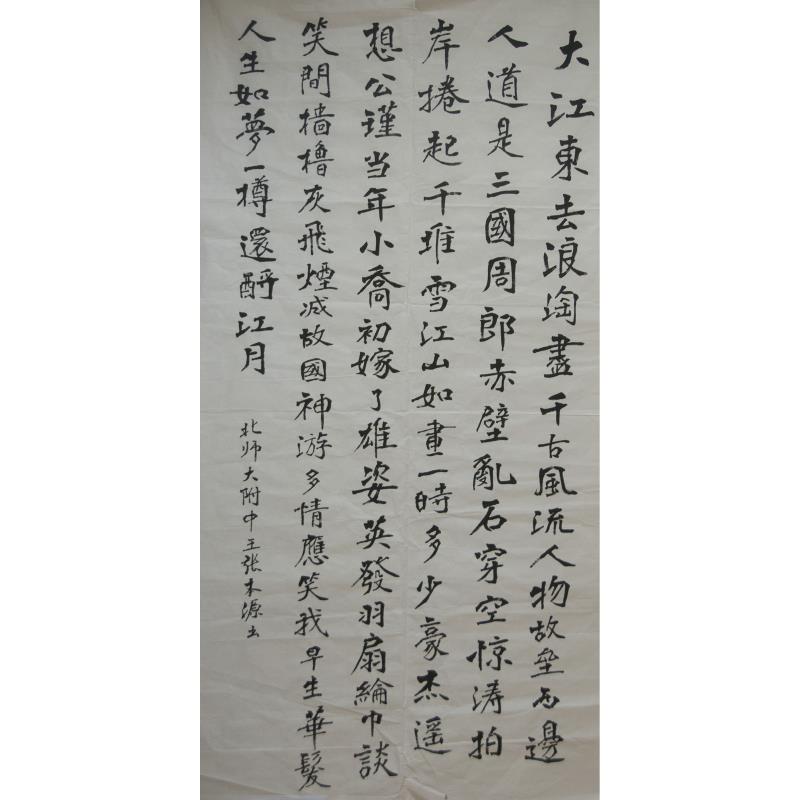 大江東去浪淘盡千古風流人物故壘西邊
人道是三國周郎赤壁亂石穿空惊涛拍
岸捲起千堆雪江山如畫一時多少豪杰遥
想公瑾当年小喬初嫁了雄姿英發羽扇綸巾談
笑間檣櫓灰飛煙减故國神游多情應笑我早生華髮
人生如夢一樽還酹江月
北师大附中王张木源书